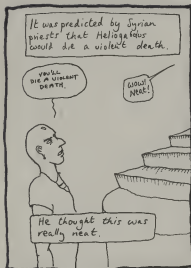 It was predicted by Syrian
priests that Heliogabolus
would die a violent death.
YOU'LL
DIE A VIOLENT
DEATH.
WOW!
Neat!
He thought this was
really neat.